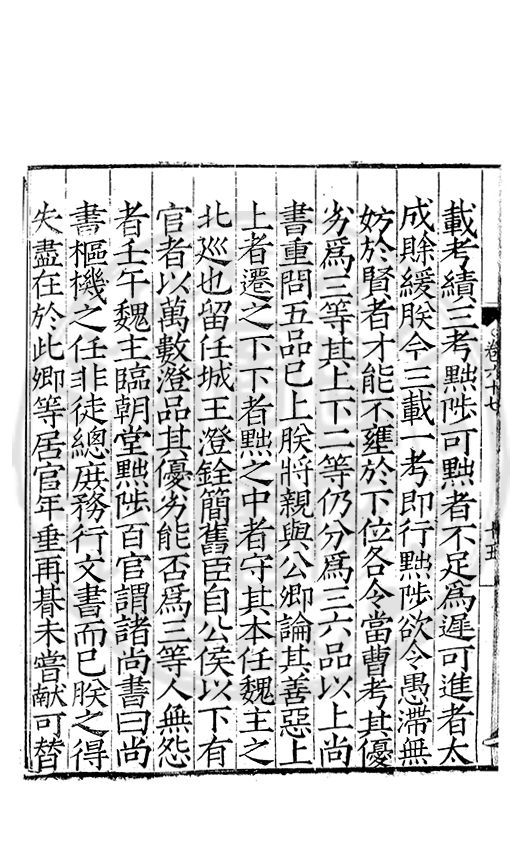 載考績三考黜陟可黜者不足爲遲可進者太
成賖緩朕今三載一考即行黜陟欲令愚滯無
妨於賢者才能不壅於下位各令當曹考其優
劣爲三等其上下二等仍分爲三六品以上尚
書重問五品已上朕將親與公卿論其善惡上
上者遷之下下者黜之中者守其本任魏主之
北廵也留任城王澄銓簡舊臣自公侯以下有
官者以萬數澄品其優劣能否爲三等人無怨
者壬午魏主臨朝堂黜陟百官謂諸尚書曰尚
書樞機之任非徒總庶務行文書而已朕之得
失盡在於此卿等居官年垂再朞未嘗獻可替
卷六十七